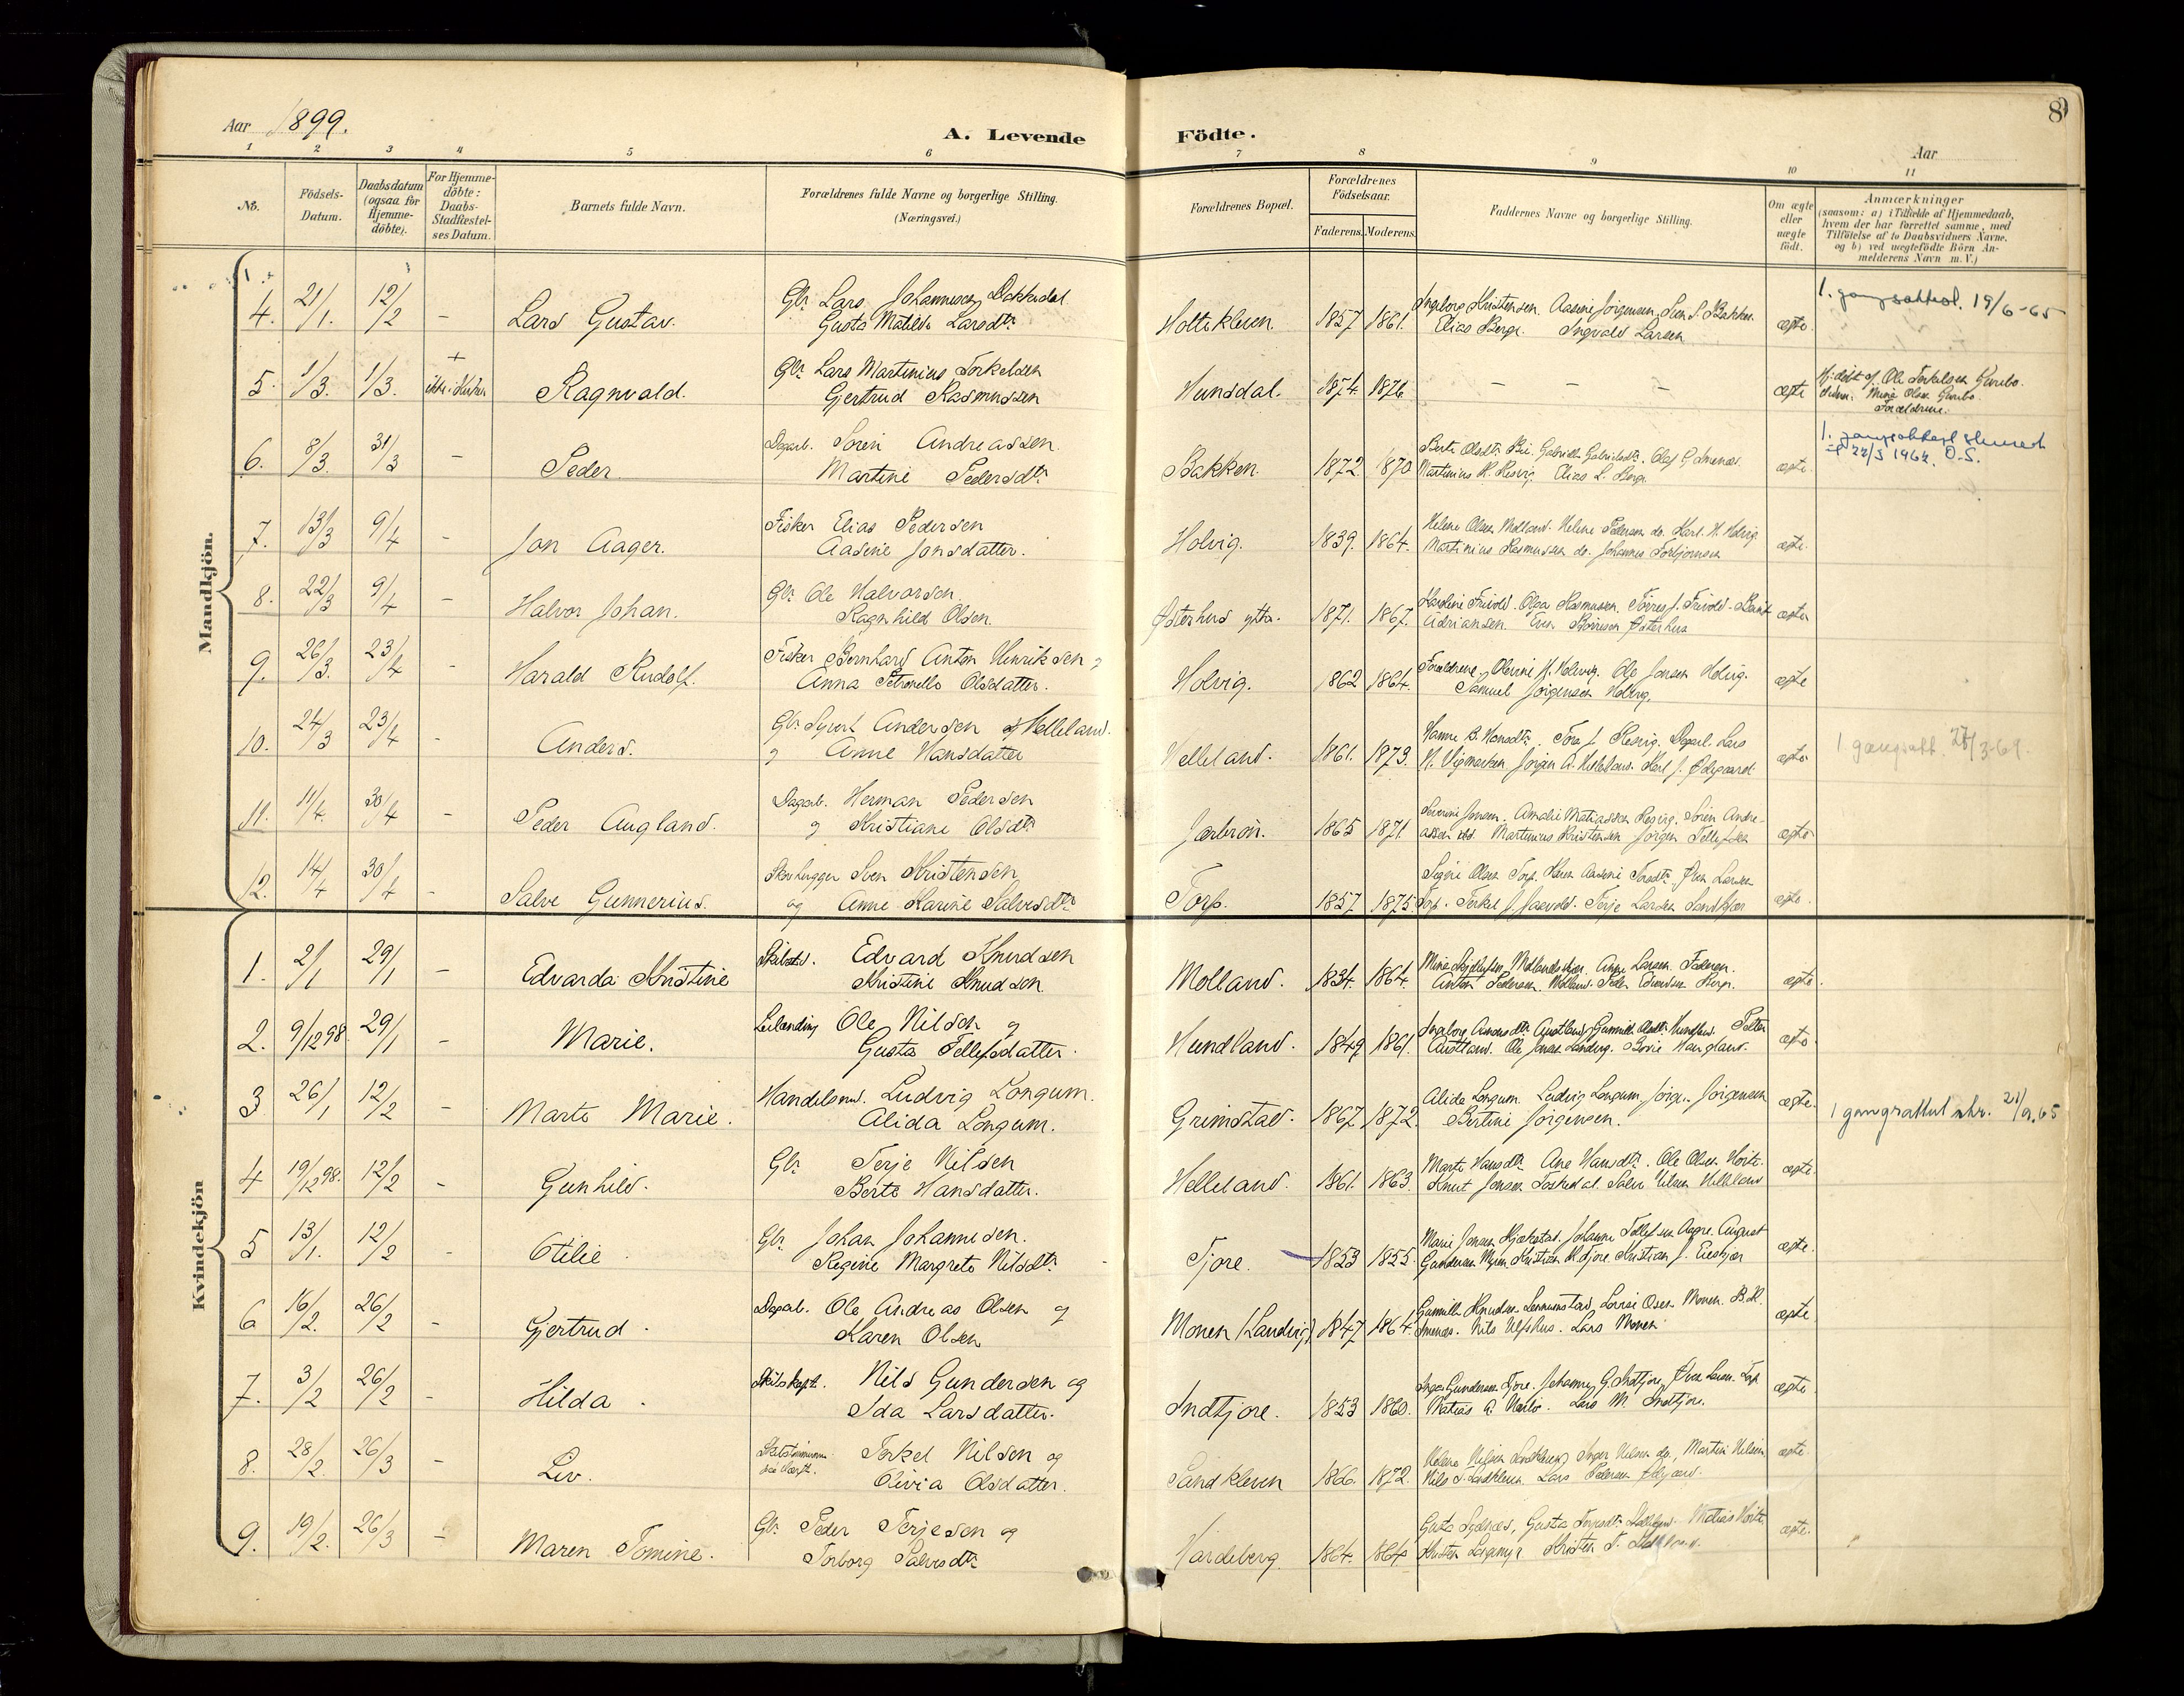 Aar 1899.
A. Levende Födte.
8
Aar
1 2 3 4 5 6 7 8 9 10 11
No.
Födsels-Datum.
Daabsdatum (ogsaa for Hjemme-döbte).
For Hjemme-döbte: Daabs-Stadfæstel-ses Datum.
Barnets fulde Navn.
Forældrenes fulde Navne og borgerlige Stilling.
(Næringsvei.)
Forældrenes Bopæl.
Forældrenes Födselsaar.
Faderens. Moderens.
Faddernes Navne og borgerlige Stilling.
Om ægte eller uægte födt.
Anmærkninger
(saasom: a) i Tilfælde af Hjemmedaab,
hvem der har forrettet samme, med
Tilföielse af to Daabsvidners Navne.
og b) ved uægtefödte Börn An-
melderens Navn m. V.)
Mandkjön.
4. 21/1. 12/2 - Lars Gustav. Gbr. Lars Johannesen Dakkedal Holtekleven. 1857 1861. Ingeborg Kristensen. Aasine Jörgensen ægte. 1. gangsattest. 19/6-65
Gusta Matilde Larsdtr. Elias Berge. Ingvald Larsen
5. 1/3. 1/3. Ragnvald. Gbr. Lars Martinius Torkelsen Hunsdal. 1874. 1876 - - - ægte Hj.döbt af Ole Torkelsen
Gjertrud Rasmussen Mina Olsen
Forældrene.
6. 8/3. 31/3 - Peder Dagarb. Sören Andreassen. Bakken 1872 1870 Berte Olsdtr. Gabrielle Gabrielsdtr. Olaf G. ægte 1. gangsattest
Martine Pedersdtr. Martinius Elias L. Berge 22/5 1962. O.S.
7. 13/3 9/4 - Jon Aager. Fisker Elias Pedersen Holvig. 1839. 1864. Helene Olsen Molland. Helene Pedersen do. Karl H. Holvig ægte.
Aasine Jonsdatter. Martinius Rasmussen do. Johannes Torbjörnsen
8. 22/3 9/4 - Halvor Johan. Gbr. Ole Halvorsen Østerhus ytre. 1871. 1867. Karoline Frivold. Olga Rasmussen. Törres J. Frivold. ægte
Ragnhild Olsen. Adriansen. Østerhus
9. 26/3. 23/4 - Harald Rudolf. Fisker Bernhard Anton Henriksen og Holvig. 1862 1864. Forældrene, Olevine H. Holvig. Ole Jensen Holvig. ægte
Anna Petronelle Olsdatter. Samuel Jörgensen Holvig.
10. 24/3 23/4 - Anders. Gbr. Syvert Andersen af Helleland. Helleland. 1861. 1873. Hanne B. Hansdtr. Tore J. Resvig. Dagarb. Lars ægte 1 gangsatt. 3-69.
og Anne Hansdatter Jörgen A. Helleland. Karl J. Ødegaard.
11. 11/4. 30/4 - Peder Augland. Dagarb. Herman Pedersen 1865 1871 Severine Jensen. Amalie Matiassen Resvig. Sören Andre- ægte
og Kristiane Olsdtr. assen Martinius Kristensen Jörgen Tellefsen
12. 14/4 30/4 - Salve Gunnerius. Skovhugger Sven Kristensen Torp. 1857 1875. Signe Olsen Torp. Karen Aasine Toresdtr. Iver Larsen ægte.
og Anne Karine Salvesdtr. Torp. Torkel J. Terje Larsen Sandkjær
Kvindekjön
1. 2/1 29/1 - Edvarda Kristine Edvard Knudsen Molland. 1834. 1864. Anne Larsen. Faderen. ægte.
Kristine Knudsen. Anton Pedersen. Molland. Peder
2. 9/12 98 29/1 - Marie. Leilænding Ole Nilsen og Hundland. 1849 1861. Austland, Gunnild Olsdtr. ægte
Gusta Tellefsdatter. Austland. Ole Jensen Landvig. Haugland.
3 26/1 12/2 - Marte Marie. Handelsmd. Ludvig Longum. Grimstad. 1867. 1872. Alida Longum. Ludvig Longum. Jörgen Jörgensen ægte. 1 gangsattest utskr. 21/9.65
Alida Longum. Bertine Jörgensen.
4 19/12 98. 12/2 - Gunhild. Gbr Terje Nilsen Helleland. 1861. 1863. Marte Hansdtr. Ane Hansdtr. Ole Olsen ægte.
Berte Hansdatter. Knut Jensen Salve Nilsen Helleland
5 13/1. 12/2 - Otilie Gbr. Johan Johannesen. Fjore. 1853 1855. Marie Jensen Johanne Tellefsen August ægte.
Regine Margrete Nilsdtr. Gundersen Kristian M. Fjore. Kristian J.
6 16/2. 26/2 - Gjertrud. Dagarb. Ole Andreas Olsen og Monen (Landvig) 1847 1864. Gunnild Knudsen Monen. ægte
Karen Olsen Nils Ufshus. Lars Monen
7. 3/2 26/2 - Hilda. Skibskapt. Nils Gundersen og Indtjore. 1853 1860. Inga Gundersen Fjore. Johanne G. Indtjore. ægte
Ida Larsdatter. Matias A. Lars M. Indtjore.
8. 28/2. 26/3 - Liv. Torkel Nilsen og Sandkleven 1866. 1872. Helene Nilsen Sandkleven, Inger Nilsen do., Martin Nilsen ægte.
Olivia Olsdatter. Nils T. Sandkleven. Lars Pedersen
9. 19/2. 26/3 - Maren Tomine. Gbr. Peder Terjesen og Hardeberg 1864. 1864 Gusta ægte.
Torborg Salvesdtr. Kristen